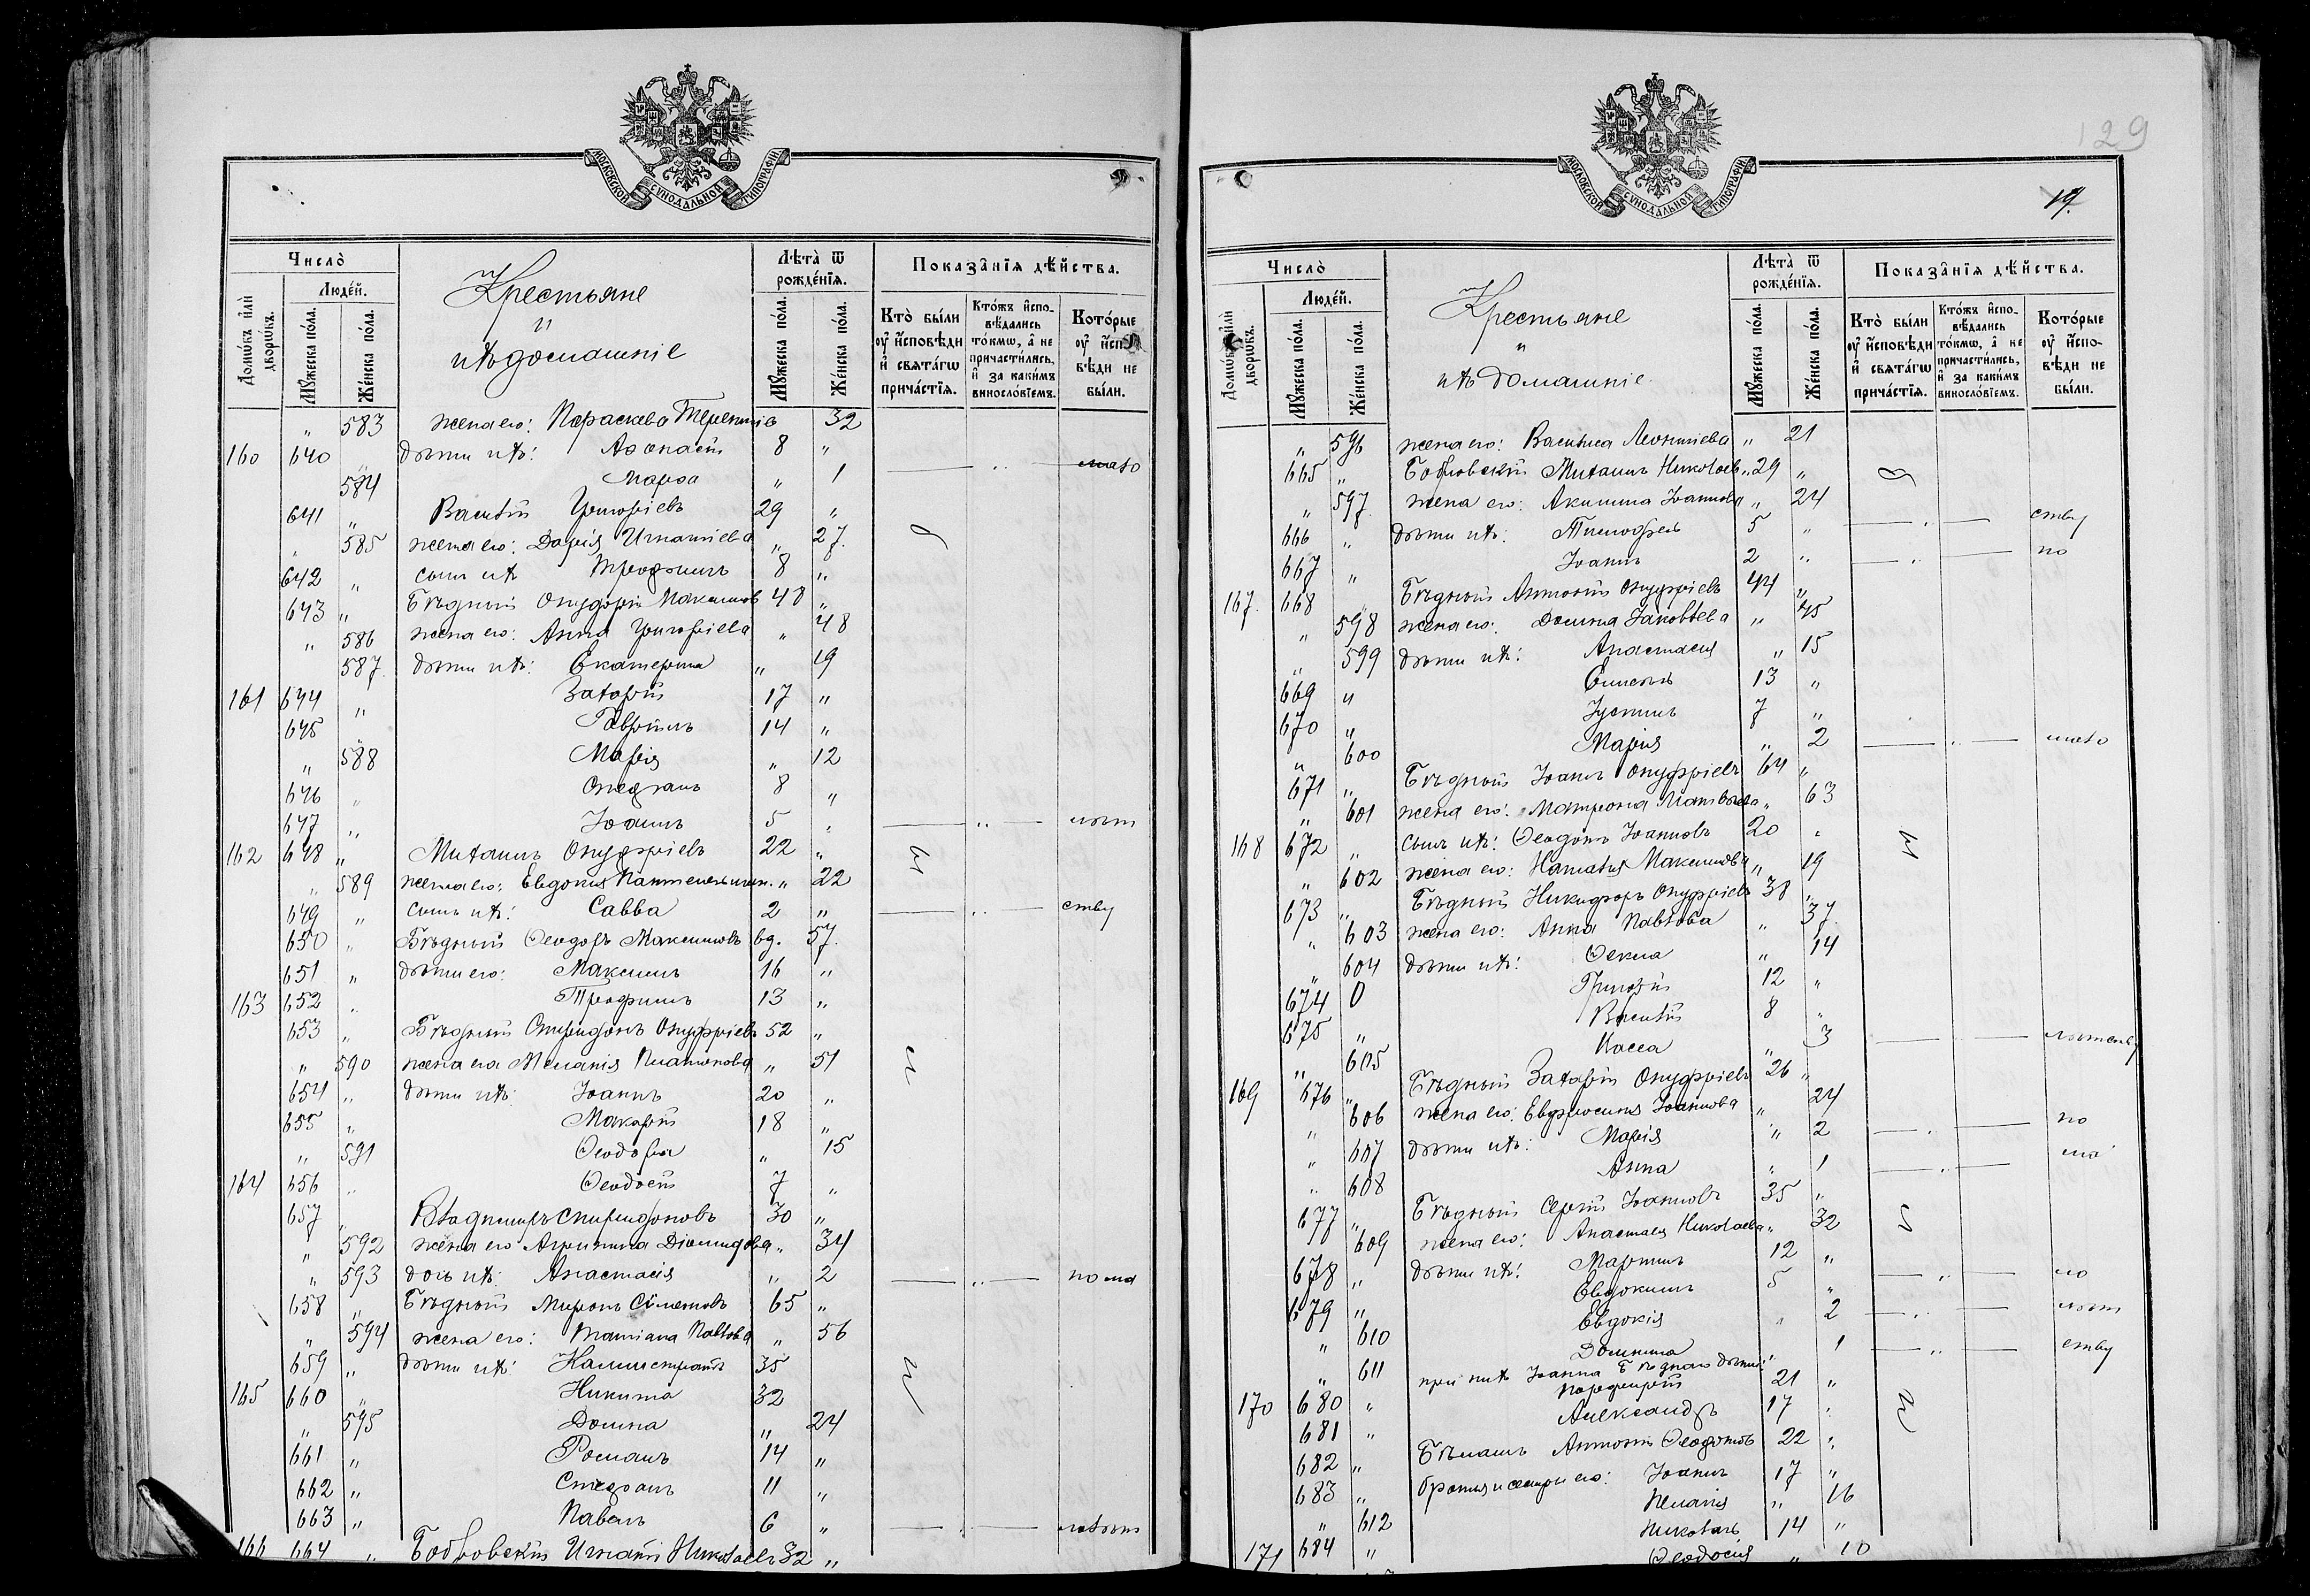 МОСКОВСКОЙ СУНОДАЛЬНОЙ ТИПОГРАФІИ
Число̀
Домѡ́въ и҆лѝ дворѡ́въ.
Люде́й.
Мꙋ́жеска по́ла.
Же́нска по́ла.
Крестьяне
и
ихъ домашніе
Лѣта̀ ѿ рожде́нїѧ.
Мꙋ́жеска по́ла.
Же́нска по́ла.
Показа̂нїѧ дѣ́йства.
Кто̀ бы́ли ᲂу҆ и҆сповѣ́ди и҆ свѧта́гѡ прича́стїѧ.
Кто́жъ и҆спо-вѣ́дались то́кмѡ, а҆ не причасти́лись, и҆ за каки́мъ виносло́вїемъ.
Кото́рые ᲂу҆ и҆спо-вѣ́ди не бы́ли.
" 583 жена его: Параскева Терентиева 32
160 640 дѣти ихъ: Аѳанасій 8 "
584 Марѳа " 1 — " — мало
641 " Василій Григоріевъ 29 "
" 585 жена его: Дарія Игнатіева " 27.
642 " сынъ ихъ Трофимъ 8 "
643 " Бѣдный Онуфрій Максимов 48 "
" 586 жена его: Анна Григоріева " 48
587. дѣти ихъ: Екатерина " 19
161 644 " Захарій 17 "
645 Гавріилъ 14 "
" 588 Марія " 12
646 " Стефанъ 8 "
647 " Іоаннъ 5 " — " — лѣтст
162 648 " Михаилъ Онуфріевъ 22 "
" 589 жена его: Евдокія Пантелеимон. " 22
649 " сынъ ихъ: Савва 2 " — " — ству
650 " Бѣдный Ѳеодоръ Максимовъ вд. 57.
651 " дѣти его: Максимъ 16 "
163 652 " Трофимъ 13 "
653 " Бѣдный Спиридонъ Онуфріевъ 52 "
" 590 жена его Меланія Платонова " 51
654 " дѣти ихъ: Іоаннъ 20 "
655 " Макарій 18 "
" 591 Ѳеодора " 15
164 656 " Ѳеодосій 7 "
657 " Владиміръ Спиридоновъ 30 "
" 592 жена его Агрипина Діомидова " 34
" 593 дочь ихъ: Анастасія " 2 — " — по ма
658 " Бѣдный Миронъ Сѵмеоновъ 65 "
" 594 жена его: Татіана Павлова " 56
659 " дѣти ихъ: Каллистратъ 35
165 660 " Никита 32
" 595 Домна " 24
661 " Романъ 14 "
662 " Стефанъ 11 "
663 " Павелъ 6 " — " — лолѣтст
166 664 " Бобровскій Игнатій Николаевъ 32 "
129
19.
МОСКОВСКОЙ СУНОДАЛЬНОЙ ТИПОГРАФІИ
Число̀
Домѡ́въ и҆лѝ дворѡ́въ.
Люде́й.
Мꙋ́жеска по́ла.
Же́нска по́ла.
Крестьяне
и
ихъ домашніе.
Лѣта̀ ѿ рожде́нїѧ.
Мꙋ́жеска по́ла.
Же́нска по́ла.
Показа̂нїѧ дѣ́йства.
Кто̀ бы́ли ᲂу҆ и҆сповѣ́ди и҆ свѧта́гѡ прича́стїѧ.
Кто́жъ и҆спо-вѣ́дались то́кмѡ, а҆ не причасти́лись, и҆ за каки́мъ виносло́вїемъ.
Кото́рые ᲂу҆ и҆спо-вѣ́ди не бы́ли.
" 596 жена его: Васильса Леонтіева " 21
665 " Бобровскій Михаилъ Николаев. 29 "
" 597. жена его: Акилина Іоаннова " 24
666 " дѣти ихъ: Тимофей 5 " — " — ству
667 " Іоаннъ 2 " — " — по
167. 668 Бѣдный Антоній Онуфріевъ 44 "
" 598 жена его: Домна Іаковлева " 45
" 599 дѣти ихъ: Анастасія " 15
669 " 13 "
670 " Іустинъ 7 "
" 600 Марія " 2 — " — мало
671 " Бѣдный Іоаннъ Онуфріевъ 64 "
" 601 жена его: Матрона Матвѣева " 63
168 672 " сынъ ихъ: Ѳеодотъ Іоанновъ 20 "
" 602 жена его: Наталія Максимова " 19
673 " Бѣдный Никифоръ Онуфріевъ 38 "
" 603 жена его: Анна Павлова " 37.
" 604 дѣти ихъ: Ѳекла " 14
674 0 Григорій 12 "
675 " Василій 8 "
" 605 Васса " 3 — " — лѣтству
169 676 " Бѣдный Захарій Онуфріевъ 26 "
" 606 жена его: Евфросинія Іоаннова " 24
" 607 дѣти ихъ: Марія " 2 — " — по
" 608 Анна " 1 — " — ма
677 " Бѣдный Сергій Іоанновъ 35 "
" 609 жена его: Анастасія Николаева " 32
678 " дѣти ихъ: Мартинъ 12 "
679 " Евдокимъ 5 " — " — ло
" 610 Евдокія " 2 — " — лѣтст
" 611 Домника " 1 — " — ству
при нихъ Іоанна Бѣднаго дѣти:
170 680 " Порфирій 21 "
681 " Александръ 17 "
682 " Антоній Ѳеодотовъ 22 "
683 " братья и сестры его: Іоаннъ 17 "
" 612 Пелагія " 16
171 684 " Николай 14 "
Ѳеодосія " 10